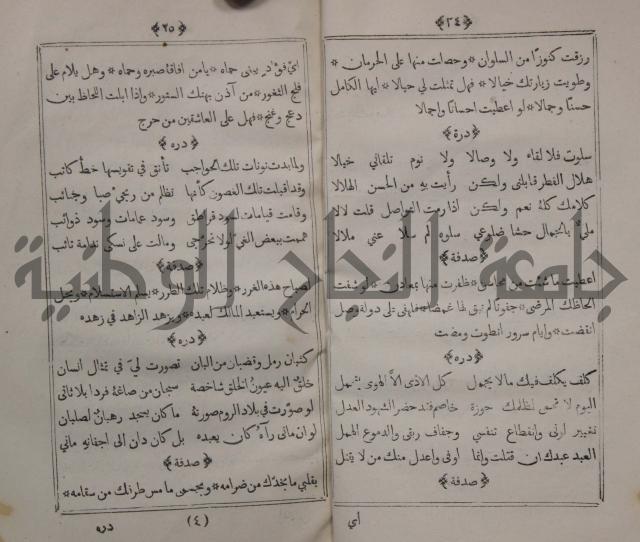 ﴿٢٤﴾
رزقت كنوزا من السلوان * وحصلت منها على الحرمان *
وطويت زيارتك خيالا * فهل تمثلت لي حيالا * ايها الكامل
حسنًا وجمالا * لو اعطيت احسانا واجمالا
﴿درة﴾
سلوت فلا لقاء ولا وصالا ولا نوم تلقاني خيالا
هلال الفطر قابلني ولكن رأيت به من الحسن الهلالا
كلامك كله نعم ولكن اذا رمت التواصل قلت لالا
بالجمال حشا ضلوعي سلوه لم سلا عني ملالا
﴿صدفة﴾
اعطيت ما شئت من محاسن * ظفرت منها بمعادن * لو شفت
الحاظك المرضى * جفونا لم تذق لها غمضا * فهي دولة وصل
انقضت * وايام سرور انطوت ومضت
﴿دره﴾
كلف يكلف فيك مالا يحمل كل الاذى الا الهوى يتحمل
اليوم لا تحق لظلمك حوزة خاصم فقد حضر الشهود العدل
تغيير لوني وانقطاع تنفسي وجفاف ريقي والدموع الهمل
العبد عبدك ان قتلت وانما اوفى واعدل منك من لا يقتل
﴿صدفة﴾
أي
﴿٢٥﴾
اي فؤاد يبقى حماه * يا من افاقه صبره وحماه * وهل يلام على
فلج الثغور * من آذن بهتك الستور * واذا ابلت اللحاظ بين
دعج وغنج * فهل على العاشقين من حرج
﴿دره﴾
ولما بدت نونات تلك الحواجب تأنق في تقويسها خط كاتب
وقد اقبلت تلك الغصون كأنها تظلم من ريحي صبا وجنائب
وقامت قيامات القدود قراطق وسود عمامات وسود ذوائب
هممت ببعض الغي لولا تحرجي ومالت على نسكي ندامة تائب
﴿صدفة﴾
لصباح هذه الغرر * وظلام تلك الطرر * يسلم الاستسلام * ويحل
الحرام * ويستعبد المالك لعبده * ويزهد الزاهد في زهده
﴿دره﴾
كثبان رمل وقضبان من البان تصورت لي في تمثال انسان
خلق اليه عيون الخلق شاخصة سبحان من صاغه فردا بلا ثاني
لو صورت في بلاد الروم صورته ما كان يسجد رهبان لصلبان
لو ان ماني رآه كان يعبده بل كان دان الى اجفانه ماني
﴿صدفة﴾
بقلبي ما بخدك من ضرامه * وبجسمي ما مس طرفك من سقامه *
(٤)
دره
جامعة النجاح الوطنية